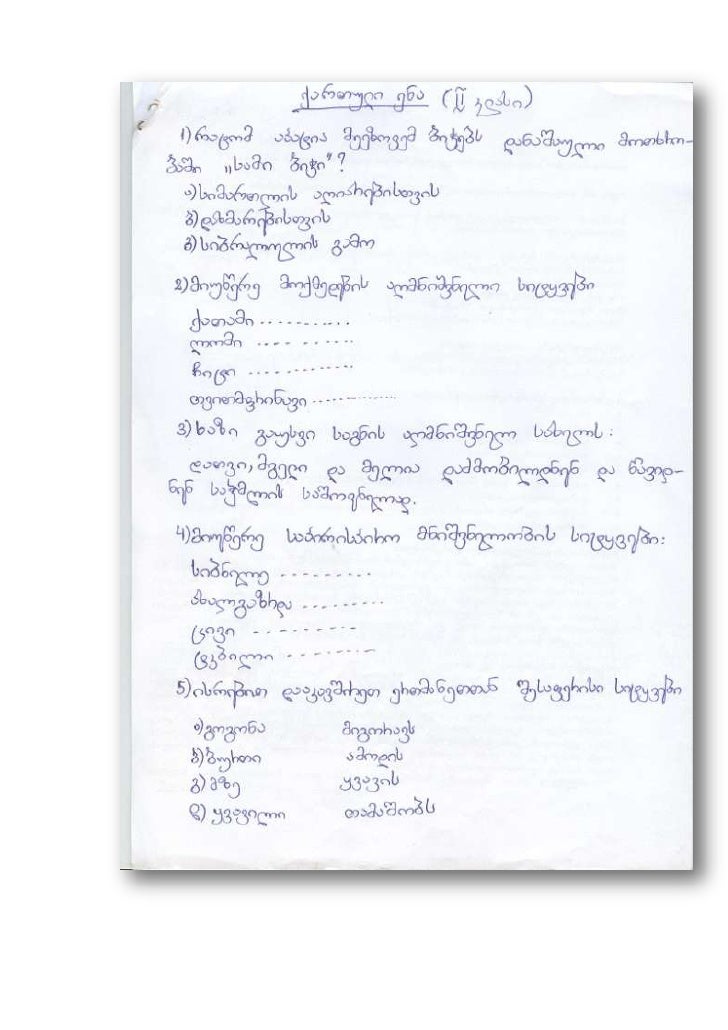 ქართული ენა (II კლასი)
1) რატომ აპატია მეეზოვემ ბიჭებს დანაშაული მოთხრო-
ბაში „სამი ბიჭი"?
ა) სიმართლის აღიარებისთვის
ბ) დახმარებისთვის
გ) სიბრალულის გამო
2) მიუწერე მოქმედების აღმნიშვნელი სიტყვები
ქათამი ...........
ლომი .... .. ......
ჩიტი ..............
თვითმფრინავი ..............
3) ხაზი გაუსვი საგნის აღმნიშვნელ სახელს:
დათვი, მგელი და მელია დაძმობილდნენ და წავიდ-
ნენ საჭმლის საშოვნელად.
4) მიუწერე საპირისპირო მნიშვნელობის სიტყვები:
სიბნელე ---------
ახალგაზრდა ---------
ცივი - --------
ტკბილი ---------
5) ისრებით დააკავშირეთ ერთმანეთთან შესაფერისი სიტყვები
ა) გოგონა მიგორავს
ბ) ბურთი ამოდის
გ) მზე ყვავის
დ) ყვავილი თამაშობს